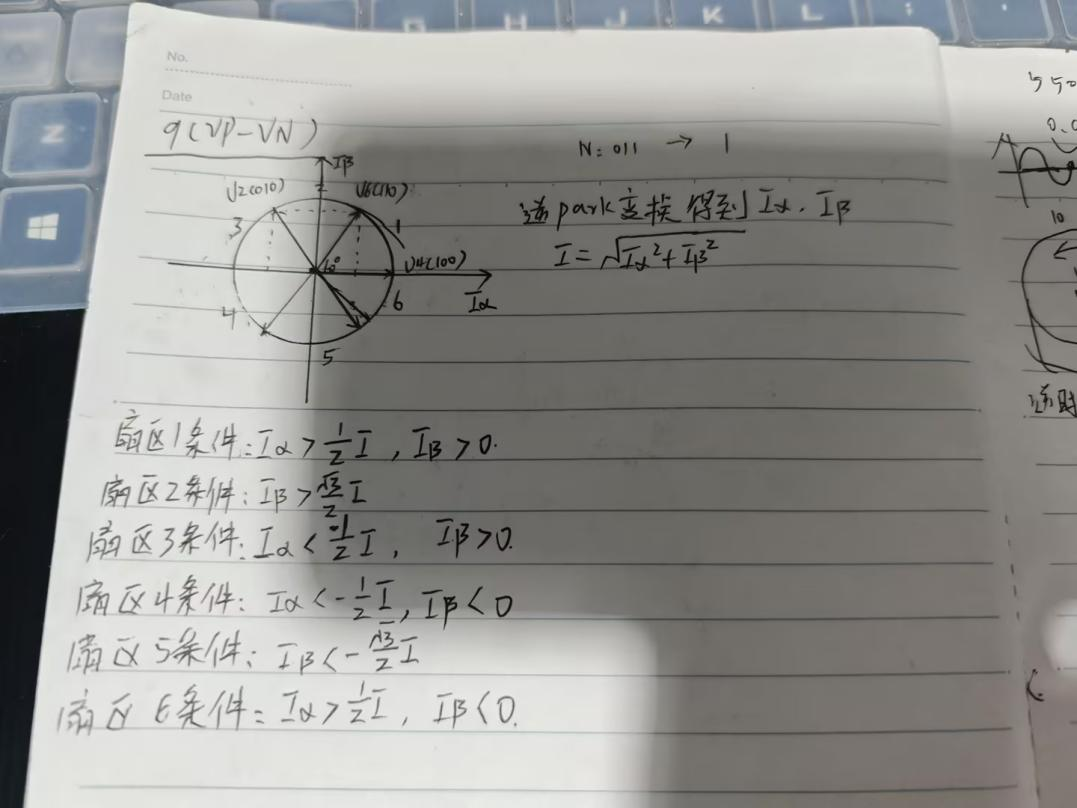 G H J K L ;
Z
No.
Date
9(VP-VN)
N: 011 → 1
Iβ
U2(010) U6(110)
2
3 1
60° U4(100)
Iα
4 6
5
逆park变换得到Iα、Iβ
I=√Iα²+Iβ²
扇区1条件:Iα>1/2 I, Iβ>0.
扇区2条件:Iβ>√3/2 I
扇区3条件:Iα<-1/2 I, Iβ>0.
扇区4条件:Iα<-1/2 I, Iβ<0
扇区5条件:Iβ<-√3/2 I
扇区6条件:Iα>1/2 I, Iβ<0.
10
逆时